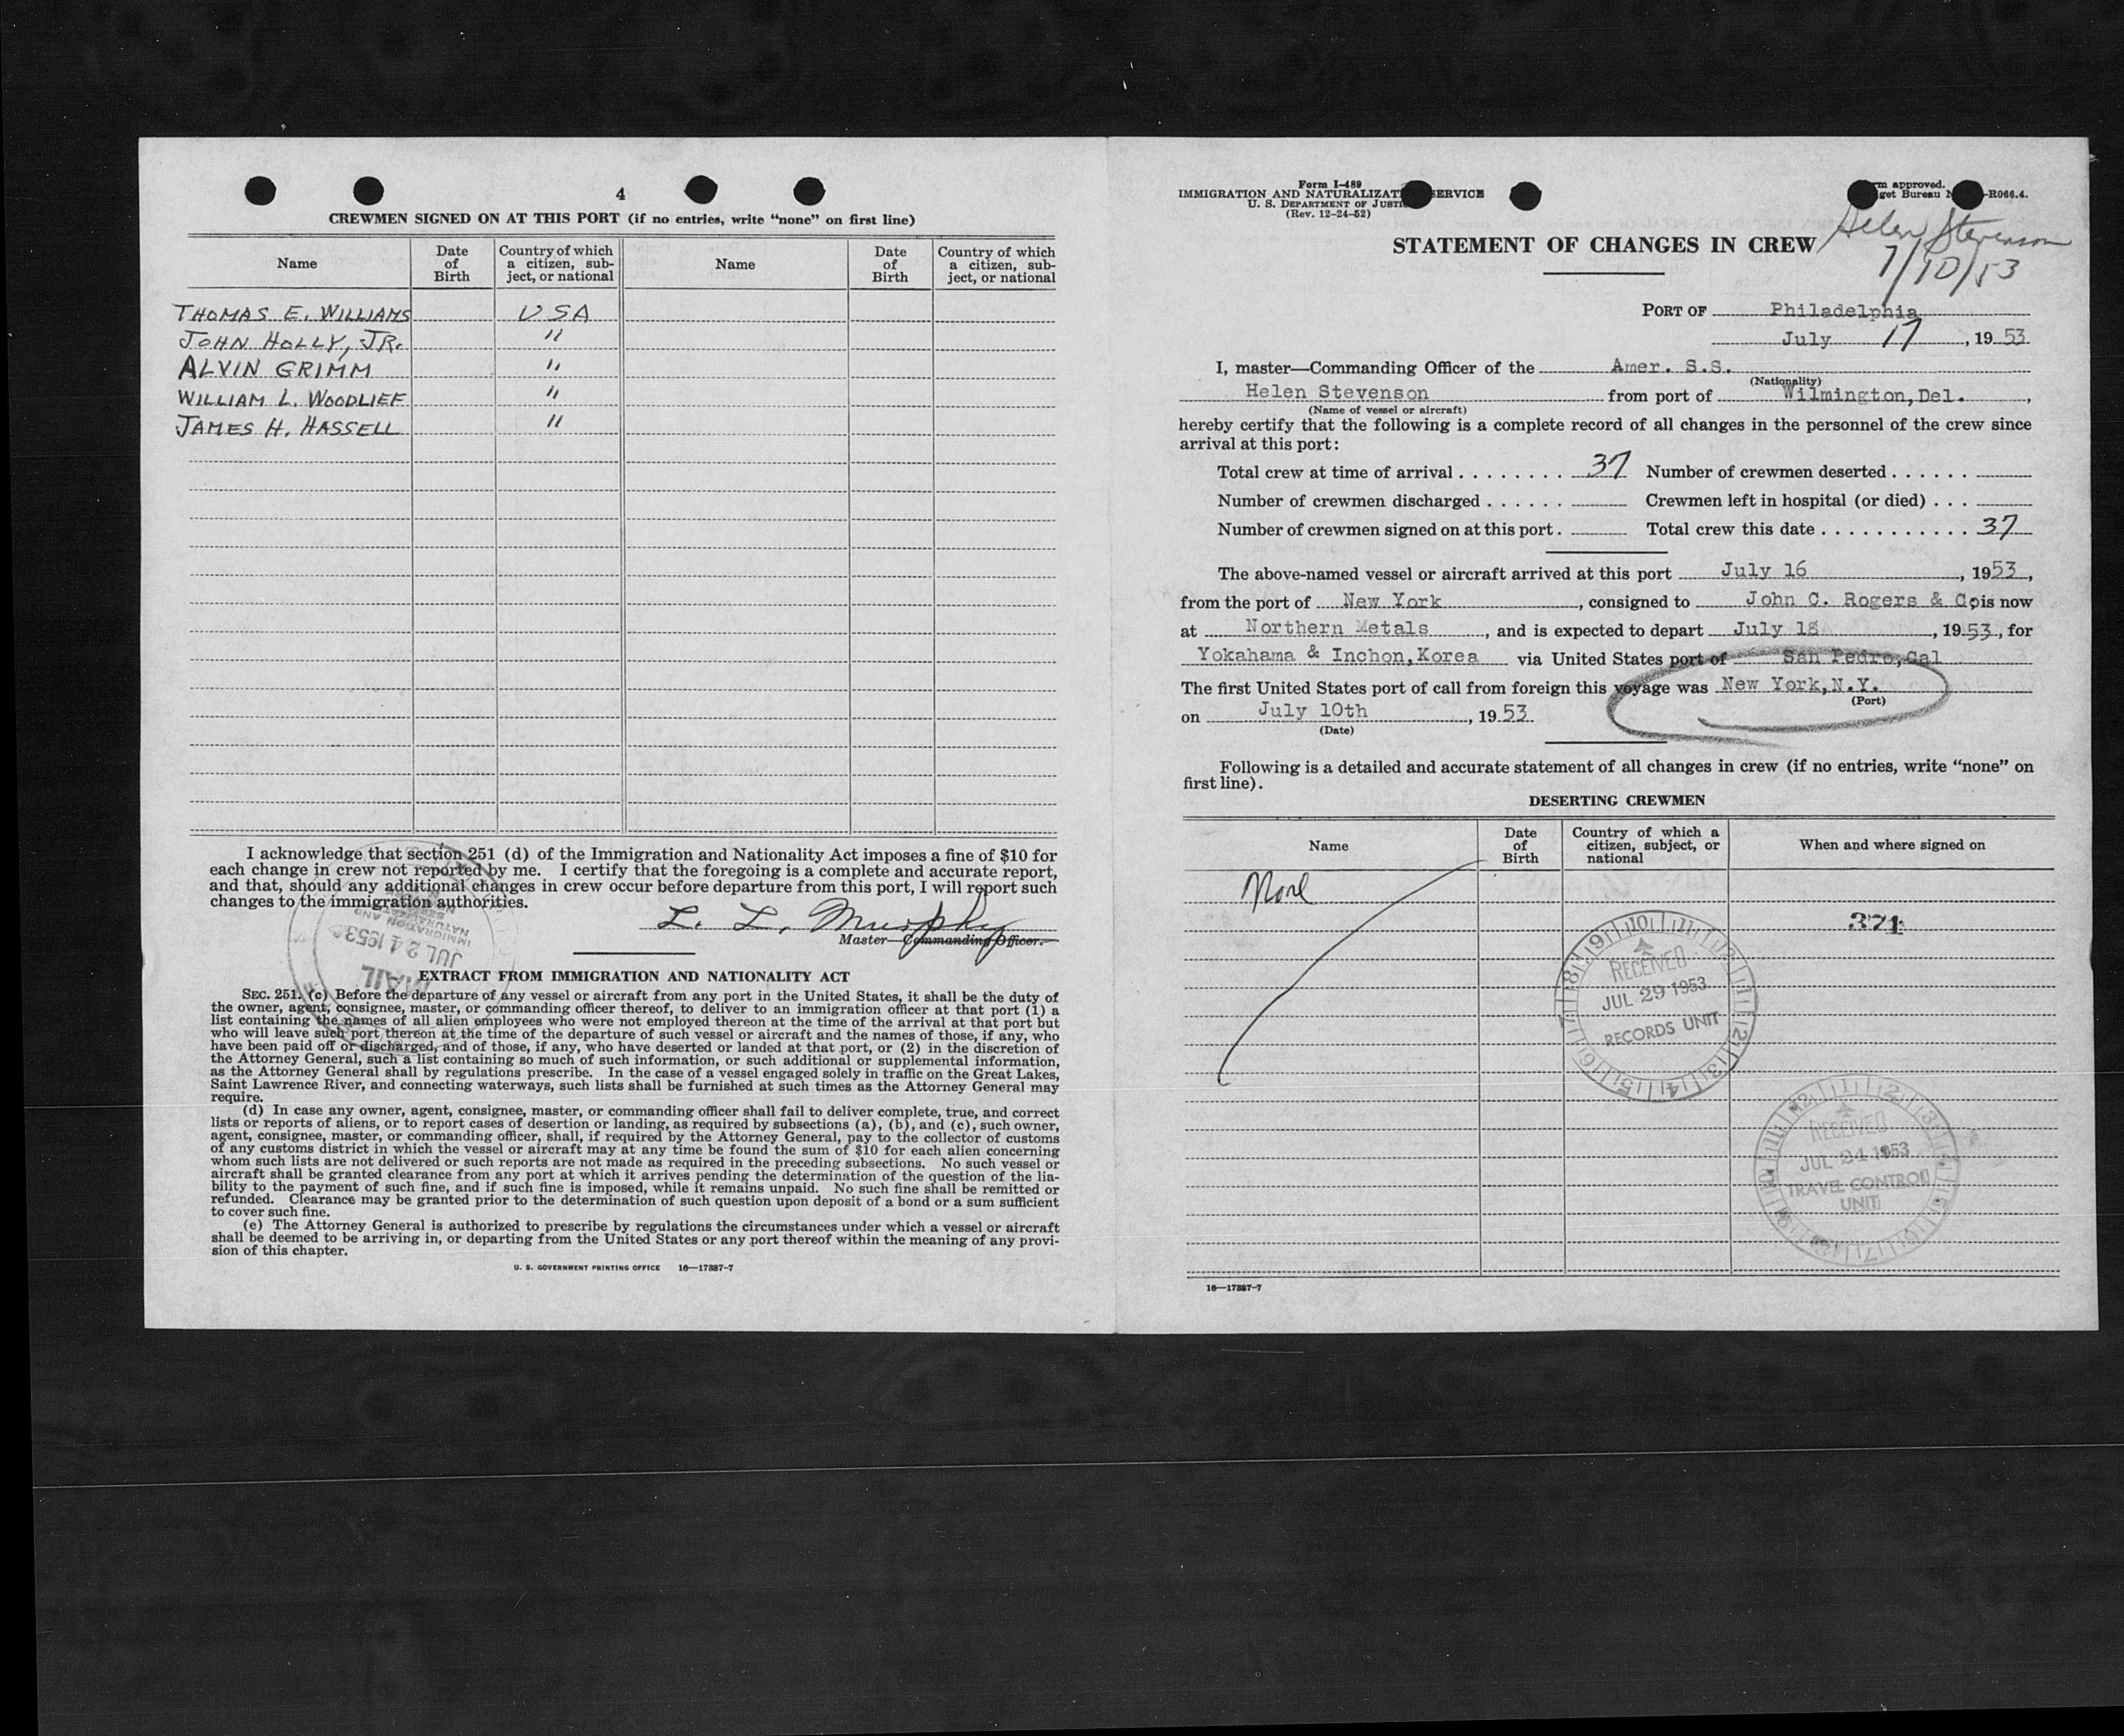 4
CREWMEN SIGNED ON AT THIS PORT (if no entries, write “none” on first line)
Name
Date of Birth
Country of which a citizen, sub-ject, or national
Name
Date of Birth
Country of which a citizen, sub-ject, or national
THOMAS E. WILLIAMS USA
JOHN HOLLY, JR. "
ALVIN GRIMM "
WILLIAM L. WOODLIEF "
JAMES H. HASSELL "
I acknowledge that section 251 (d) of the Immigration and Nationality Act imposes a fine of $10 for
each change in crew not reported by me. I certify that the foregoing is a complete and accurate report,
and that, should any additional changes in crew occur before departure from this port, I will report such
changes to the immigration authorities.
L. L. Murphy
Master—Commanding Officer.
IMMIGRATION AND
JUL 24 1953
MAIL
EXTRACT FROM IMMIGRATION AND NATIONALITY ACT
SEC. 251. (c) Before the departure of any vessel or aircraft from any port in the United States, it shall be the duty of
the owner, agent, consignee, master, or commanding officer thereof, to deliver to an immigration officer at that port (1) a
list containing the names of all alien employees who were not employed thereon at the time of the arrival at that port but
who will leave such port thereon at the time of the departure of such vessel or aircraft and the names of those, if any, who
have been paid off or discharged, and of those, if any, who have deserted or landed at that port, or (2) in the discretion of
the Attorney General, such a list containing so much of such information, or such additional or supplemental information,
as the Attorney General shall by regulations prescribe. In the case of a vessel engaged solely in traffic on the Great Lakes,
Saint Lawrence River, and connecting waterways, such lists shall be furnished at such times as the Attorney General may
require.
(d) In case any owner, agent, consignee, master, or commanding officer shall fail to deliver complete, true, and correct
lists or reports of aliens, or to report cases of desertion or landing, as required by subsections (a), (b), and (c), such owner,
agent, consignee, master, or commanding officer, shall, if required by the Attorney General, pay to the collector of customs
of any customs district in which the vessel or aircraft may at any time be found the sum of $10 for each alien concerning
whom such lists are not delivered or such reports are not made as required in the preceding subsections. No such vessel or
aircraft shall be granted clearance from any port at which it arrives pending the determination of the question of the lia-
bility to the payment of such fine, and if such fine is imposed, while it remains unpaid. No such fine shall be remitted or
refunded. Clearance may be granted prior to the determination of such question upon deposit of a bond or a sum sufficient
to cover such fine.
(e) The Attorney General is authorized to prescribe by regulations the circumstances under which a vessel or aircraft
shall be deemed to be arriving in, or departing from the United States or any port thereof within the meaning of any provi-
sion of this chapter.
U. S. GOVERNMENT PRINTING OFFICE 16—17887-7
Form I-489
IMMIGRATION AND NATURALIZAT ERVICE
U. S. DEPARTMENT OF JUSTI
(Rev. 12-24-52)
m approved.
get Bureau N -R066.4.
Helen Stevenson
7/10/53
STATEMENT OF CHANGES IN CREW
PORT OF Philadelphia
July 17, 1953
I, master—Commanding Officer of the Amer. S.S.
(Nationality)
Helen Stevenson from port of Wilmington, Del.,
(Name of vessel or aircraft)
hereby certify that the following is a complete record of all changes in the personnel of the crew since
arrival at this port:
Total crew at time of arrival 37 Number of crewmen deserted
Number of crewmen discharged Crewmen left in hospital (or died)
Number of crewmen signed on at this port Total crew this date 37
The above-named vessel or aircraft arrived at this port July 16, 1953,
from the port of New York, consigned to John C. Rogers & Co, is now
at Northern Metals, and is expected to depart July 18, 1953, for
Yokahama & Inchon, Korea via United States port of San Pedro, Cal
The first United States port of call from foreign this voyage was New York, N.Y.
(Port)
on July 10th, 1953
(Date)
Following is a detailed and accurate statement of all changes in crew (if no entries, write “none” on
first line).
DESERTING CREWMEN
Name
Date of Birth
Country of which a citizen, subject, or national
When and where signed on
None
371
RECEIVED
JUL 29 1953
RECORDS UNIT
RECEIVED
JUL 24 1953
TRAVEL CONTROL
UNIT
16—17887-7